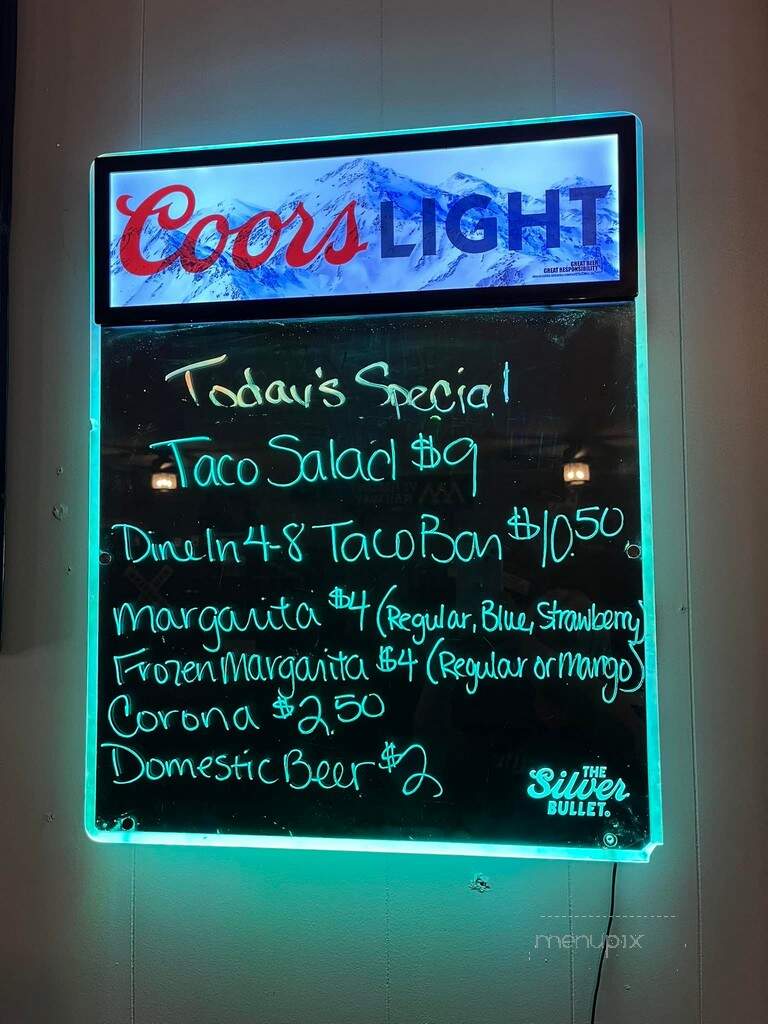 Coors LIGHT
GREAT BEER
GREAT RESPONSIBILITY
Today's Special
Taco Salad $9
Dine In 4-8 Taco Bar $10.50
Margarita $4 (Regular, Blue, Strawberry)
Frozen Margarita $4 (Regular or Mango)
Corona $2.50
Domestic Beer $2
THE
Silver
BULLET.
menupix